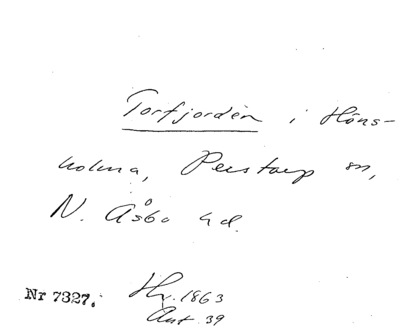 Torfjorden i Höns-
holma, Perstorp sn,
N. Åsbo hd.
Nr 7327. Hv. 1863
Ant. 39